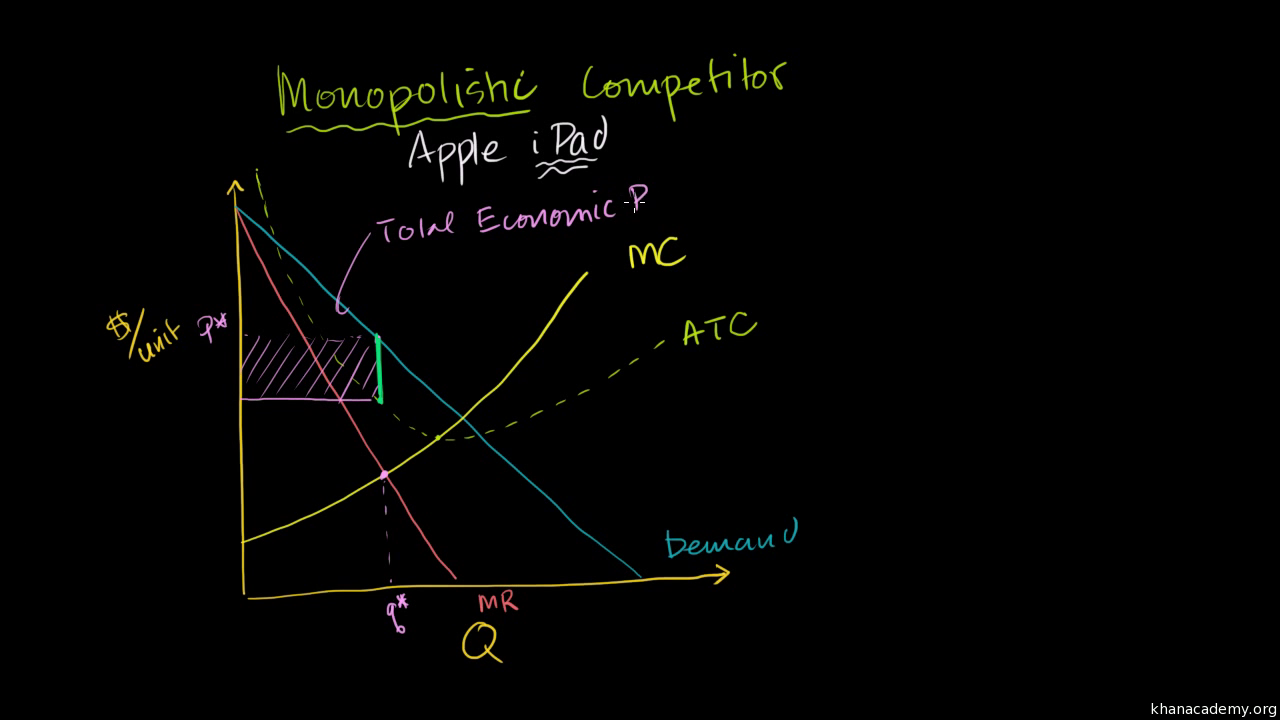 Monopolistic Competitor
Apple iPad
Total Economic P
MC
$/unit
P*
ATC
Demand
q*
MR
Q
khanacademy.org